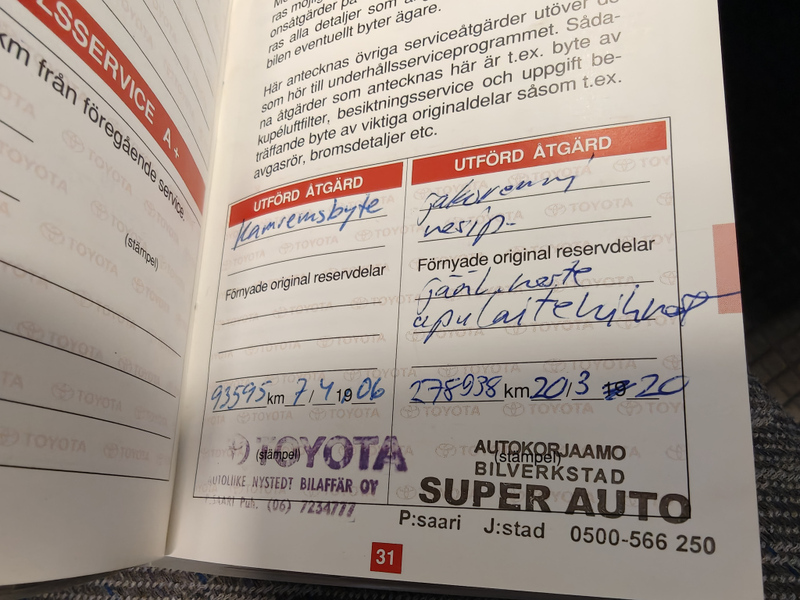 LSSERVICE A+
km från föregående service.
(stämpel)
ras alla detaljer som
bilen eventuellt byter ägare.
Här antecknas övriga serviceåtgärder utöver de
som hör till underhållsserviceprogrammet. Såda-
na åtgärder som antecknas här är t.ex. byte av
kupéluftfilter, besiktningsservice och uppgift be-
träffande byte av viktiga originaldelar såsom t.ex.
avgasrör, bromsdetaljer etc.
UTFÖRD ÅTGÄRD
Kamremsbyte
Förnyade original reservdelar
93595 km 7/4 19 06
(stämpel)
TOYOTA
AUTOLIIKE NYSTEDT BILAFFÄR OY
P:SAARI Puh. (06) 7234777
UTFÖRD ÅTGÄRD
jakoremmi
vesip.
Förnyade original reservdelar
jääh. neste
apulaitehihnat
278938 km 20/3 19 20
(stämpel)
AUTOKORJAAMO
BILVERKSTAD
SUPER AUTO
P:saari J:stad 0500-566 250
31